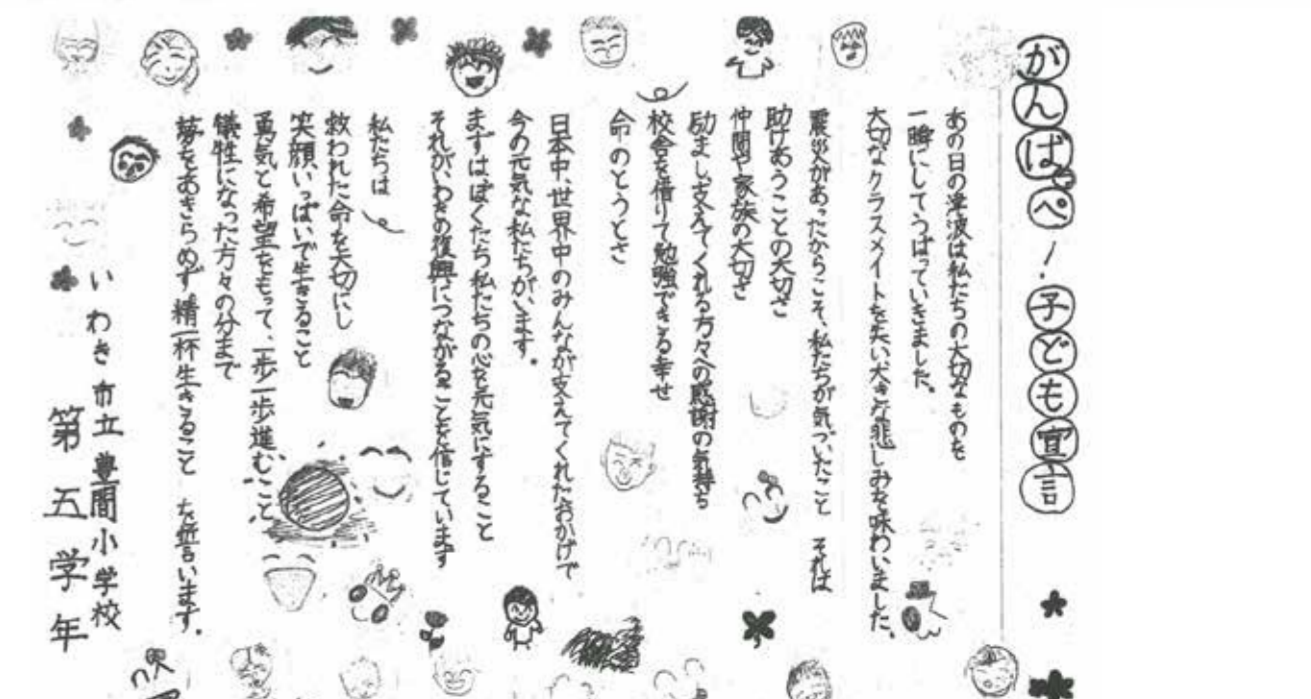 がんばっぺ！子ども宣言
あの日の津波は私たちの大切なものを
一瞬にしてうばっていきました。
大切なクラスメイトを失い大きな悲しみを味わいました。
震災があったからこそ、私たちが気づいたこと それは
助けあうことの大切さ
仲間や家族の大切さ
励まし支えてくれる方々への感謝の気持ち
校舎を借りて勉強できる幸せ
命のとうとさ
日本中、世界中のみんなが支えてくれたおかげで
今の元気な私たちがいます。
まずは、ぼくたち私たちの心を元気にすること
それがいわきの復興につながることを信じています
私たちは
救われた命を大切にし
笑顔いっぱいで生きること
勇気と希望をもって、一歩一歩進むこと
犠牲になった方々の分まで
夢をあきらめず 精一杯生きること を誓います。
いわき市立豊間小学校
第五学年